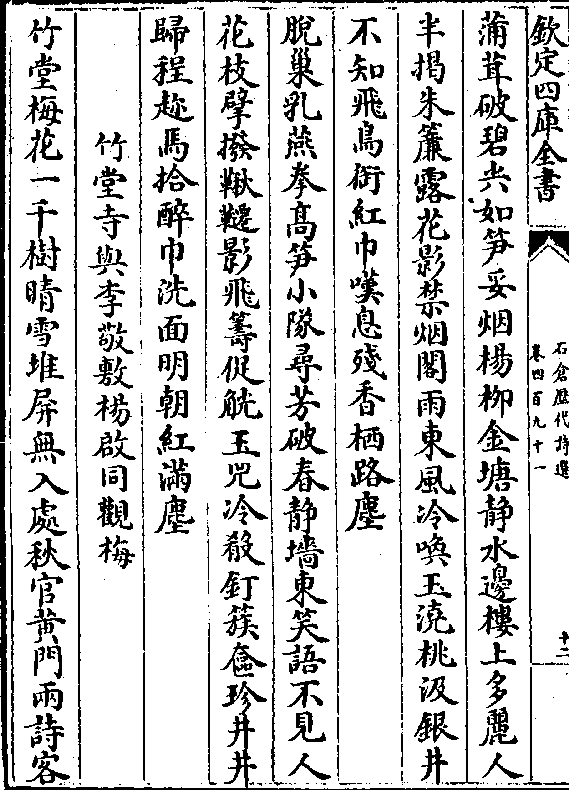 欽定四庫全書
石倉歷代詩選
卷四百九十一
十二
蒲茸破碧尖如笋妥烟楊柳金塘静水邊樓上多麗人
半揭朱簾露花影禁烟閣雨東風冷喚玉澆桃汲銀井
不知飛鳥銜紅巾嘆息殘香栖路塵
脫巢乳燕拳高笋小隊尋芳破春静墻東笑語不見人
花枝擘撥鞦韆影飛籌促觥玉兕冷殺飣簇奩珍井井
歸程趂馬拾醉巾洗面明朝紅滿塵
竹堂寺與李敬敷楊啟同觀梅
竹堂梅花一千樹晴雪堆屏無入處秋官黄門兩詩客